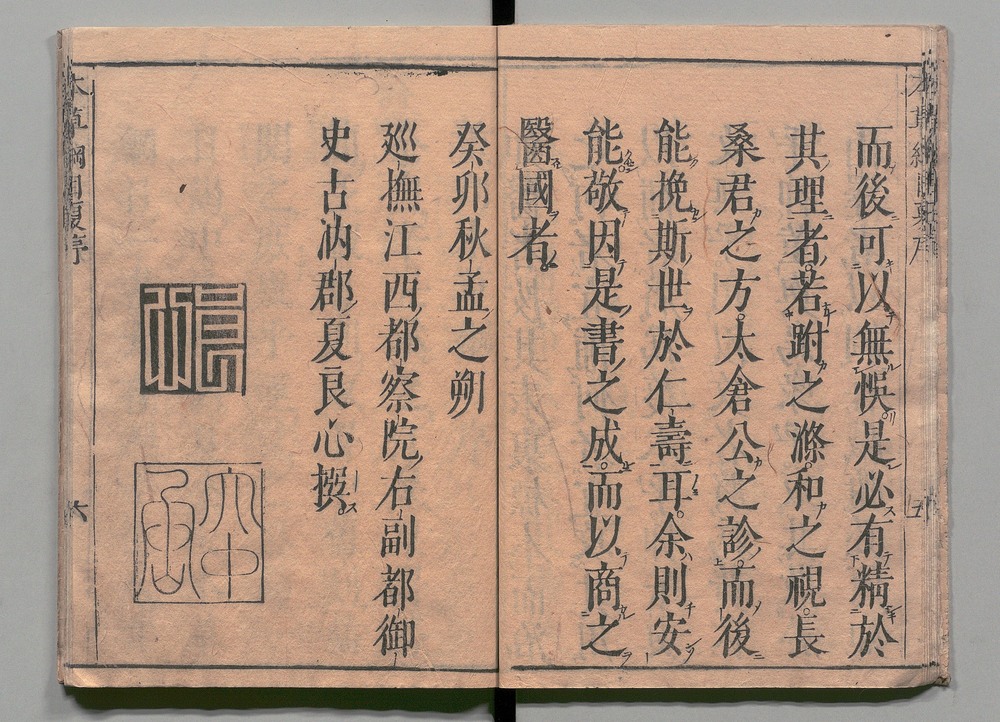 而後可以無悞是必有精於
其理者若跗之滌和之視長
桑君之方太倉公之診而後
能挽斯世於仁壽耳余則安
能敬因是書之成而以商之
醫國者
癸卯秋孟之朔
廵撫江西都察院右副都御
史古汭郡夏良心撰